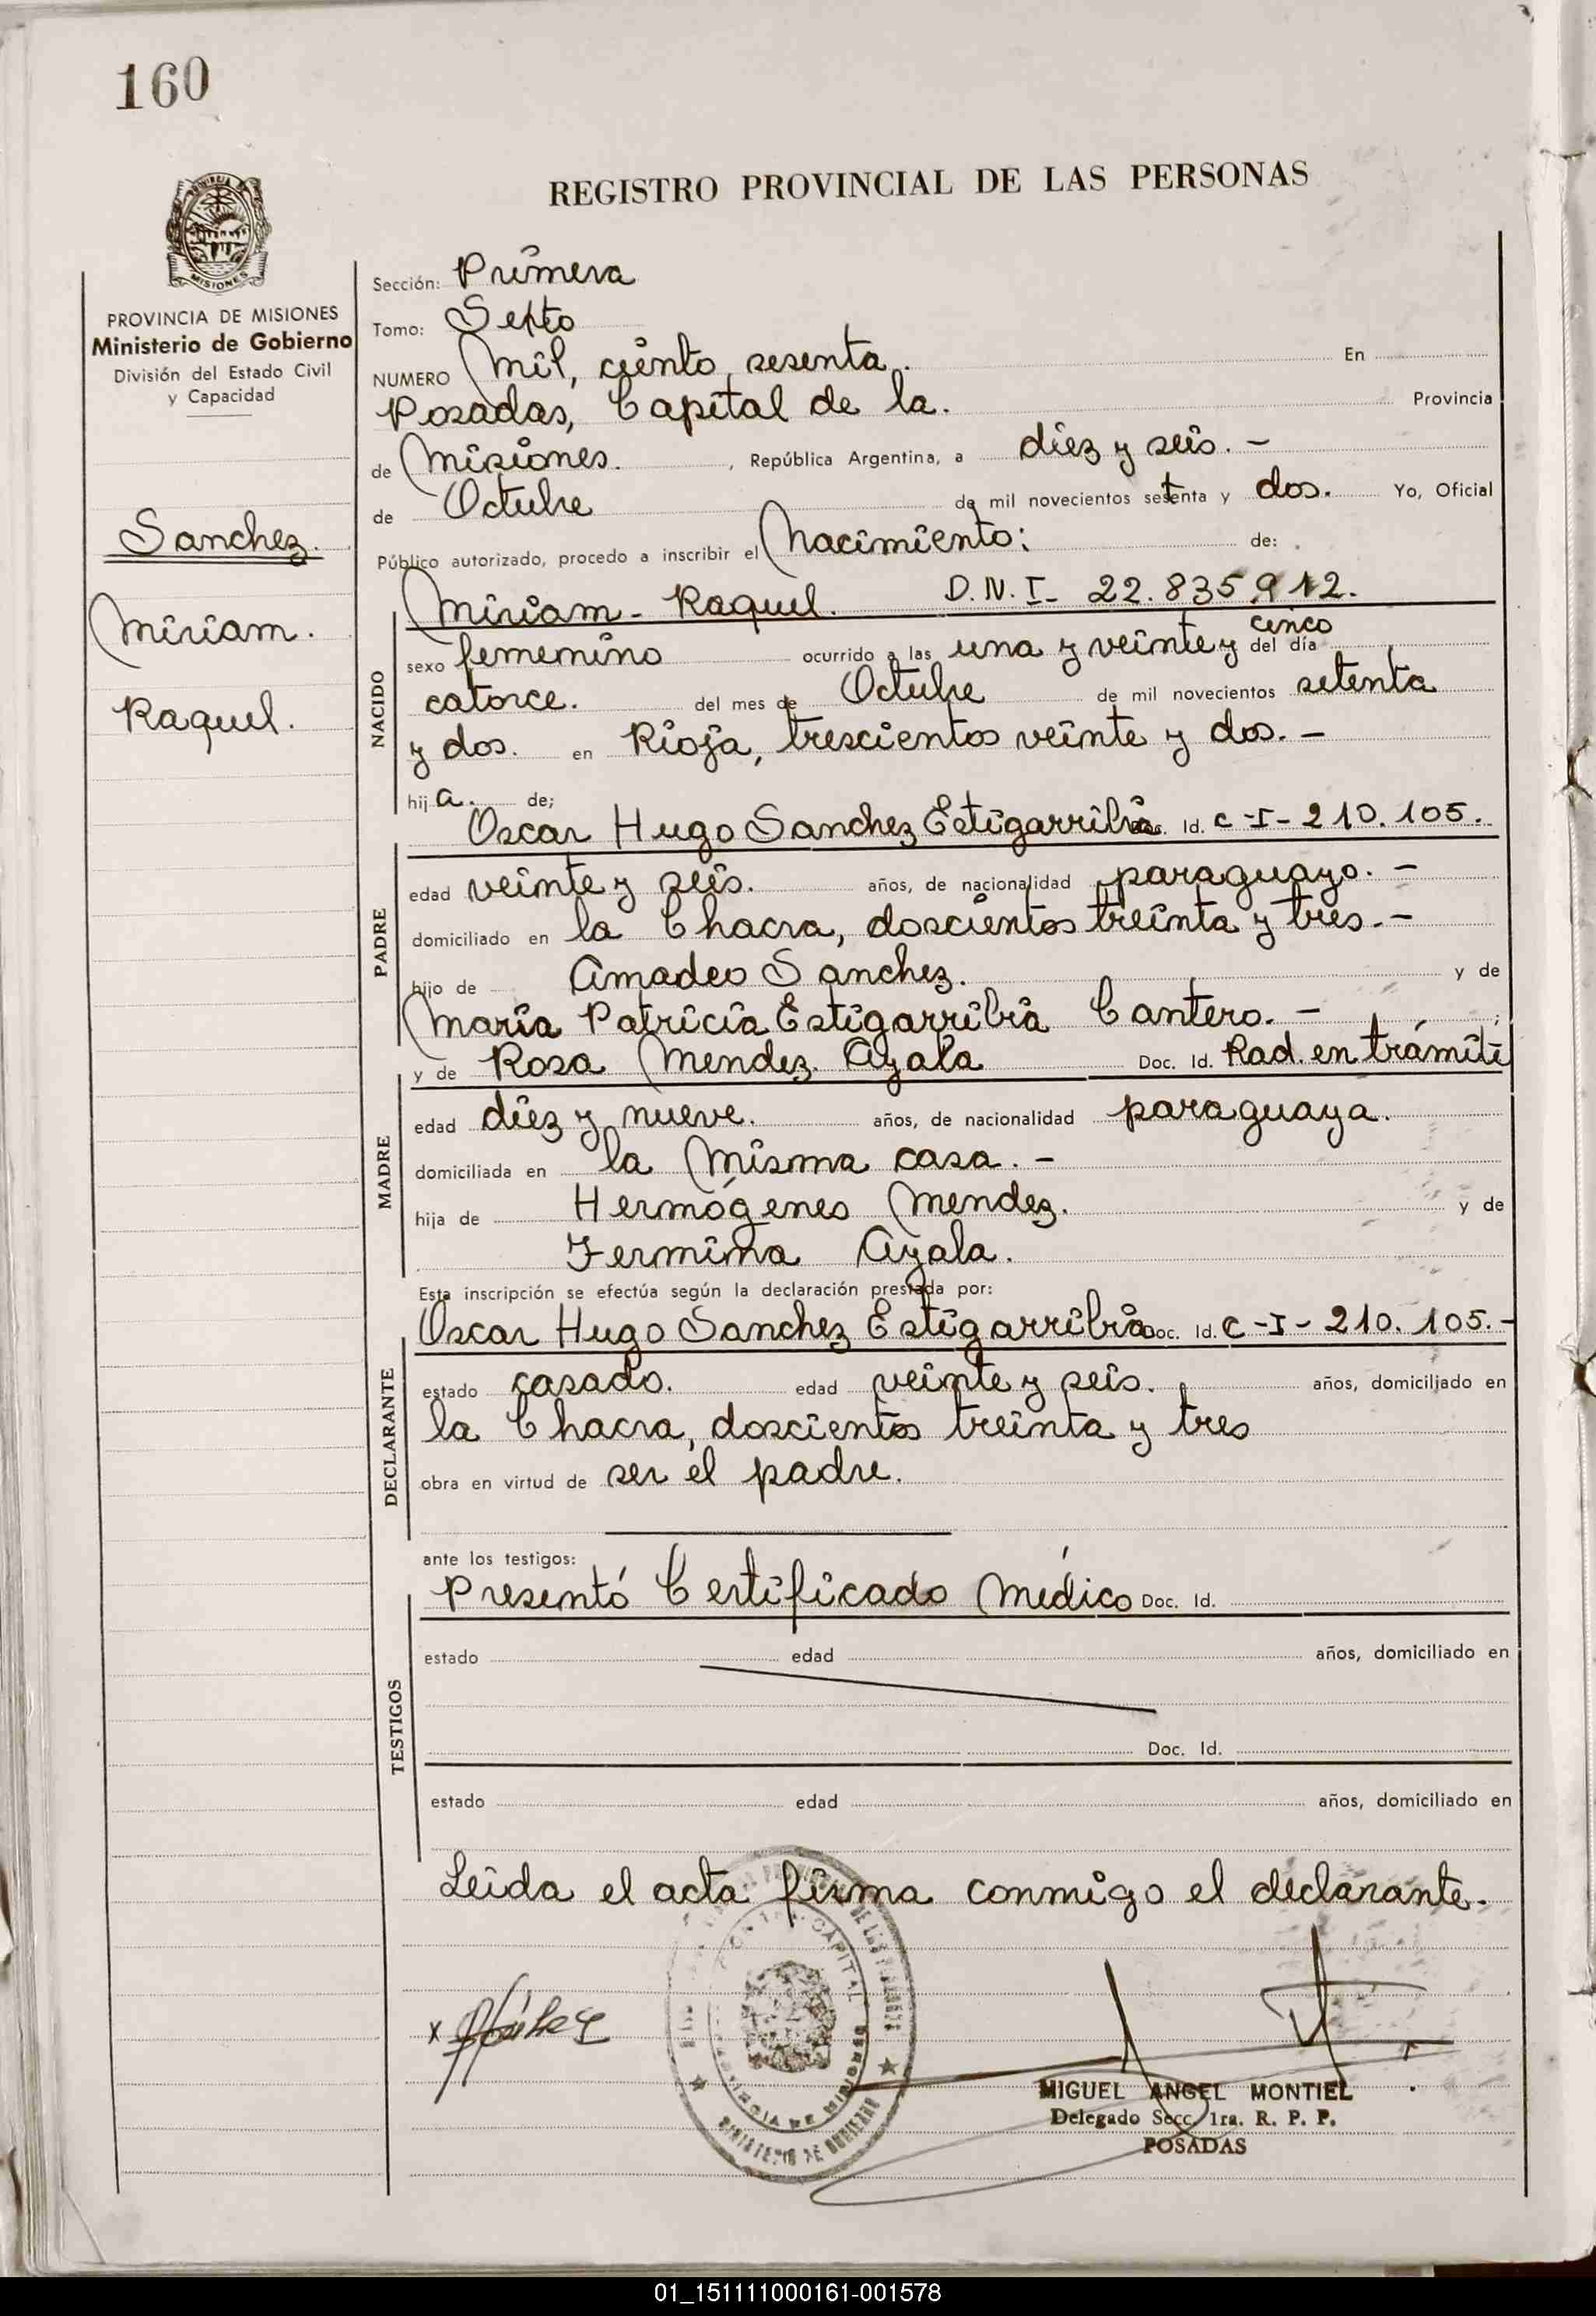 160
REGISTRO PROVINCIAL DE LAS PERSONAS
MISIONES
PROVINCIA DE MISIONES
Ministerio de Gobierno
División del Estado Civil
y Capacidad
Sanchez.
Miriam.
Raquel.
Sección: Primera
Tomo: Septo
NUMERO Mil, ciento sesenta. En
Posadas, Capital de la. Provincia
de Misiones. , República Argentina, a diez y seis. -
de Octubre de mil novecientos setenta y dos. Yo, Oficial
Público autorizado, procedo a inscribir el Nacimiento: de:
NACIDO
Miriam - Raquel. D.N.I- 22.835.912.
cinco
sexo femenino ocurrido a las una y veinte y del día
catorce. del mes de Octubre de mil novecientos setenta
y dos. en Rioja, trescientos veinte y dos. -
hija. de;
PADRE
Oscar Hugo Sanchez Estigarribia Doc. Id. C-I-210.105.
edad veinte y seis. años, de nacionalidad paraguayo. -
domiciliado en la Chacra, doscientos treinta y tres. -
hijo de Amadeo Sanchez. y de
María Patricia Estigarribia Cantero. -
MADRE
y de Rosa Mendez Ayala Doc. Id. Rad. en trámite
edad diez y nueve. años, de nacionalidad paraguaya.
domiciliada en la misma casa. -
hija de Hermógenes Mendez. y de
Fermina Ayala.
Esta inscripción se efectúa según la declaración prestada por:
DECLARANTE
Oscar Hugo Sanchez Estigarribia Doc. Id. C-I-210.105.-
estado casado. edad veinte y seis. años, domiciliado en
la Chacra, doscientos treinta y tres
obra en virtud de ser el padre.
ante los testigos:
TESTIGOS
Presentó Certificado Médico Doc. Id.
estado edad años, domiciliado en
Doc. Id.
estado edad años, domiciliado en
Leida el acta firma conmigo el declarante.
x
CAPITAL
MIGUEL ANGEL MONTIEL
Delegado Secc. 1ra. R. P. P.
POSADAS
01_151111000161-001578